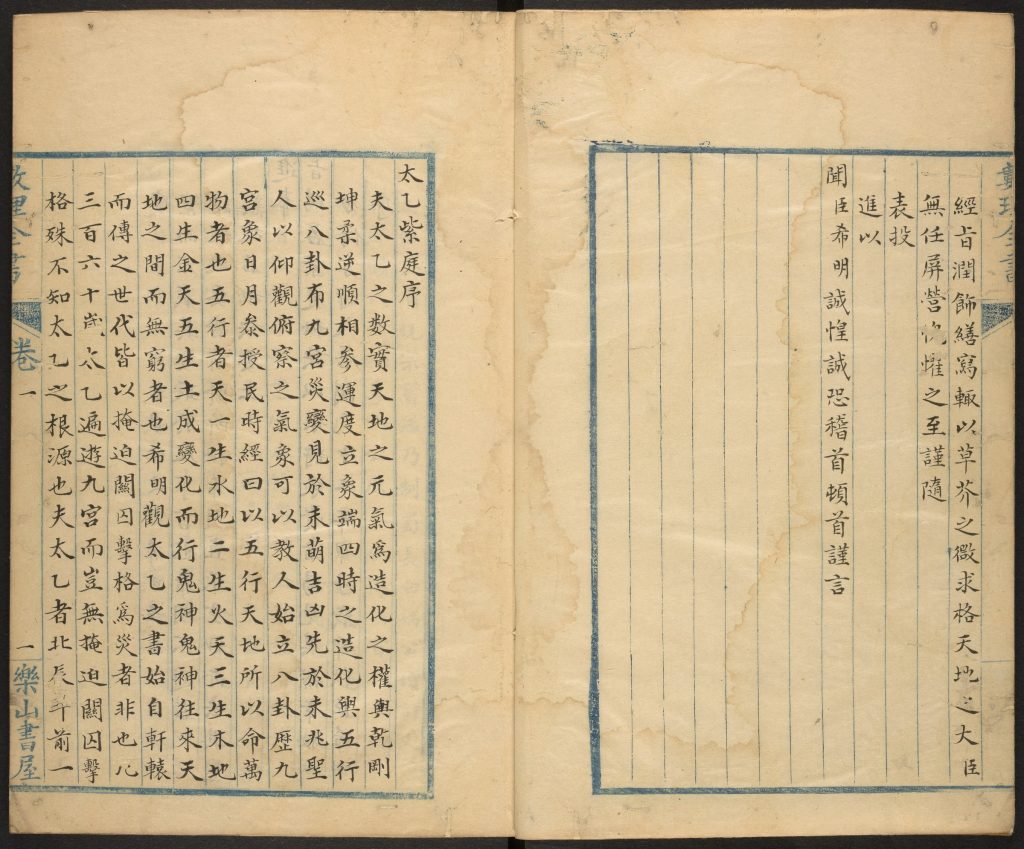 經旨潤飾繕寫輒以草芥之微求格天地之大臣
無任屏營惶懼之至謹隨
表投
進以
聞臣希明誠惶誠恐稽首頓首謹言
太乙紫庭序
夫太乙之數實天地之元氣爲造化之權輿乾剛
坤柔逆順相參運度立象端四時之造化與五行
巡八卦布九宮災變見於未萌吉凶先於未兆聖
人以仰觀俯察之氣象可以教人始立八卦歷九
宮象日月叅授民時經曰以五行天地所以命萬
物者也五行者天一生水地二生火天三生木地
四生金天五生土成變化而行鬼神鬼神往來天
地之間而無窮者也希明觀太乙之書始自軒轅
而傳之世代皆以掩迫關囚擊格爲災者非也凡
三百六十歲太乙遍遊九宮而豈無掩迫關囚擊
格殊不知太乙之根源也夫太乙者北辰斗前一
數理全書 卷一 一 樂山書屋